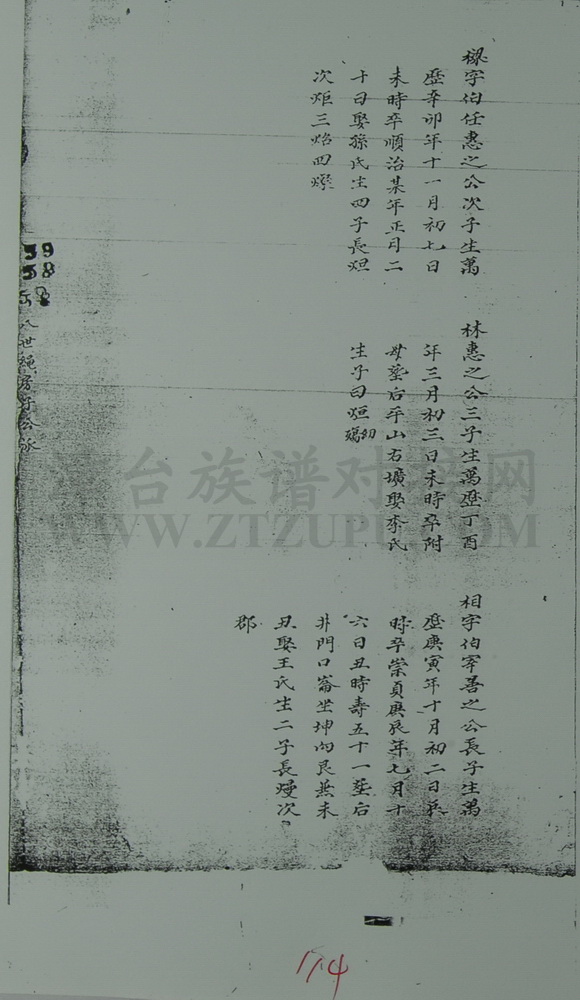 樑字伯任惠之公次子生萬
歷辛卯年十一月初七日
未時卒順治某年正月二
十日娶孫氏生四子長炟
次炬三焰四燦
林惠之公三子生萬歷丁酉
年三月初三日未時卒附
母塟后平山右壙娶李氏
生子曰烜幼殤
相字伯宰善之公長子生萬
歷庚寅年十月初二日辰
時卒崇貞庚辰年七月十
六日丑時壽五十一塟后
井門口崙坐坤向艮兼未
丑娶王氏生二子長熳次
郡
59
58
八世純房
台族谱对接网
WWW.ZTZUPU.COM
114